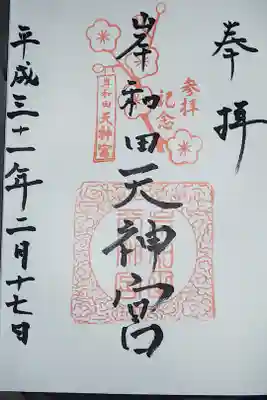 奉拝
参拝
記念
岸和田
天神宮
岸和田天神宮
平成三十一年二月十七日